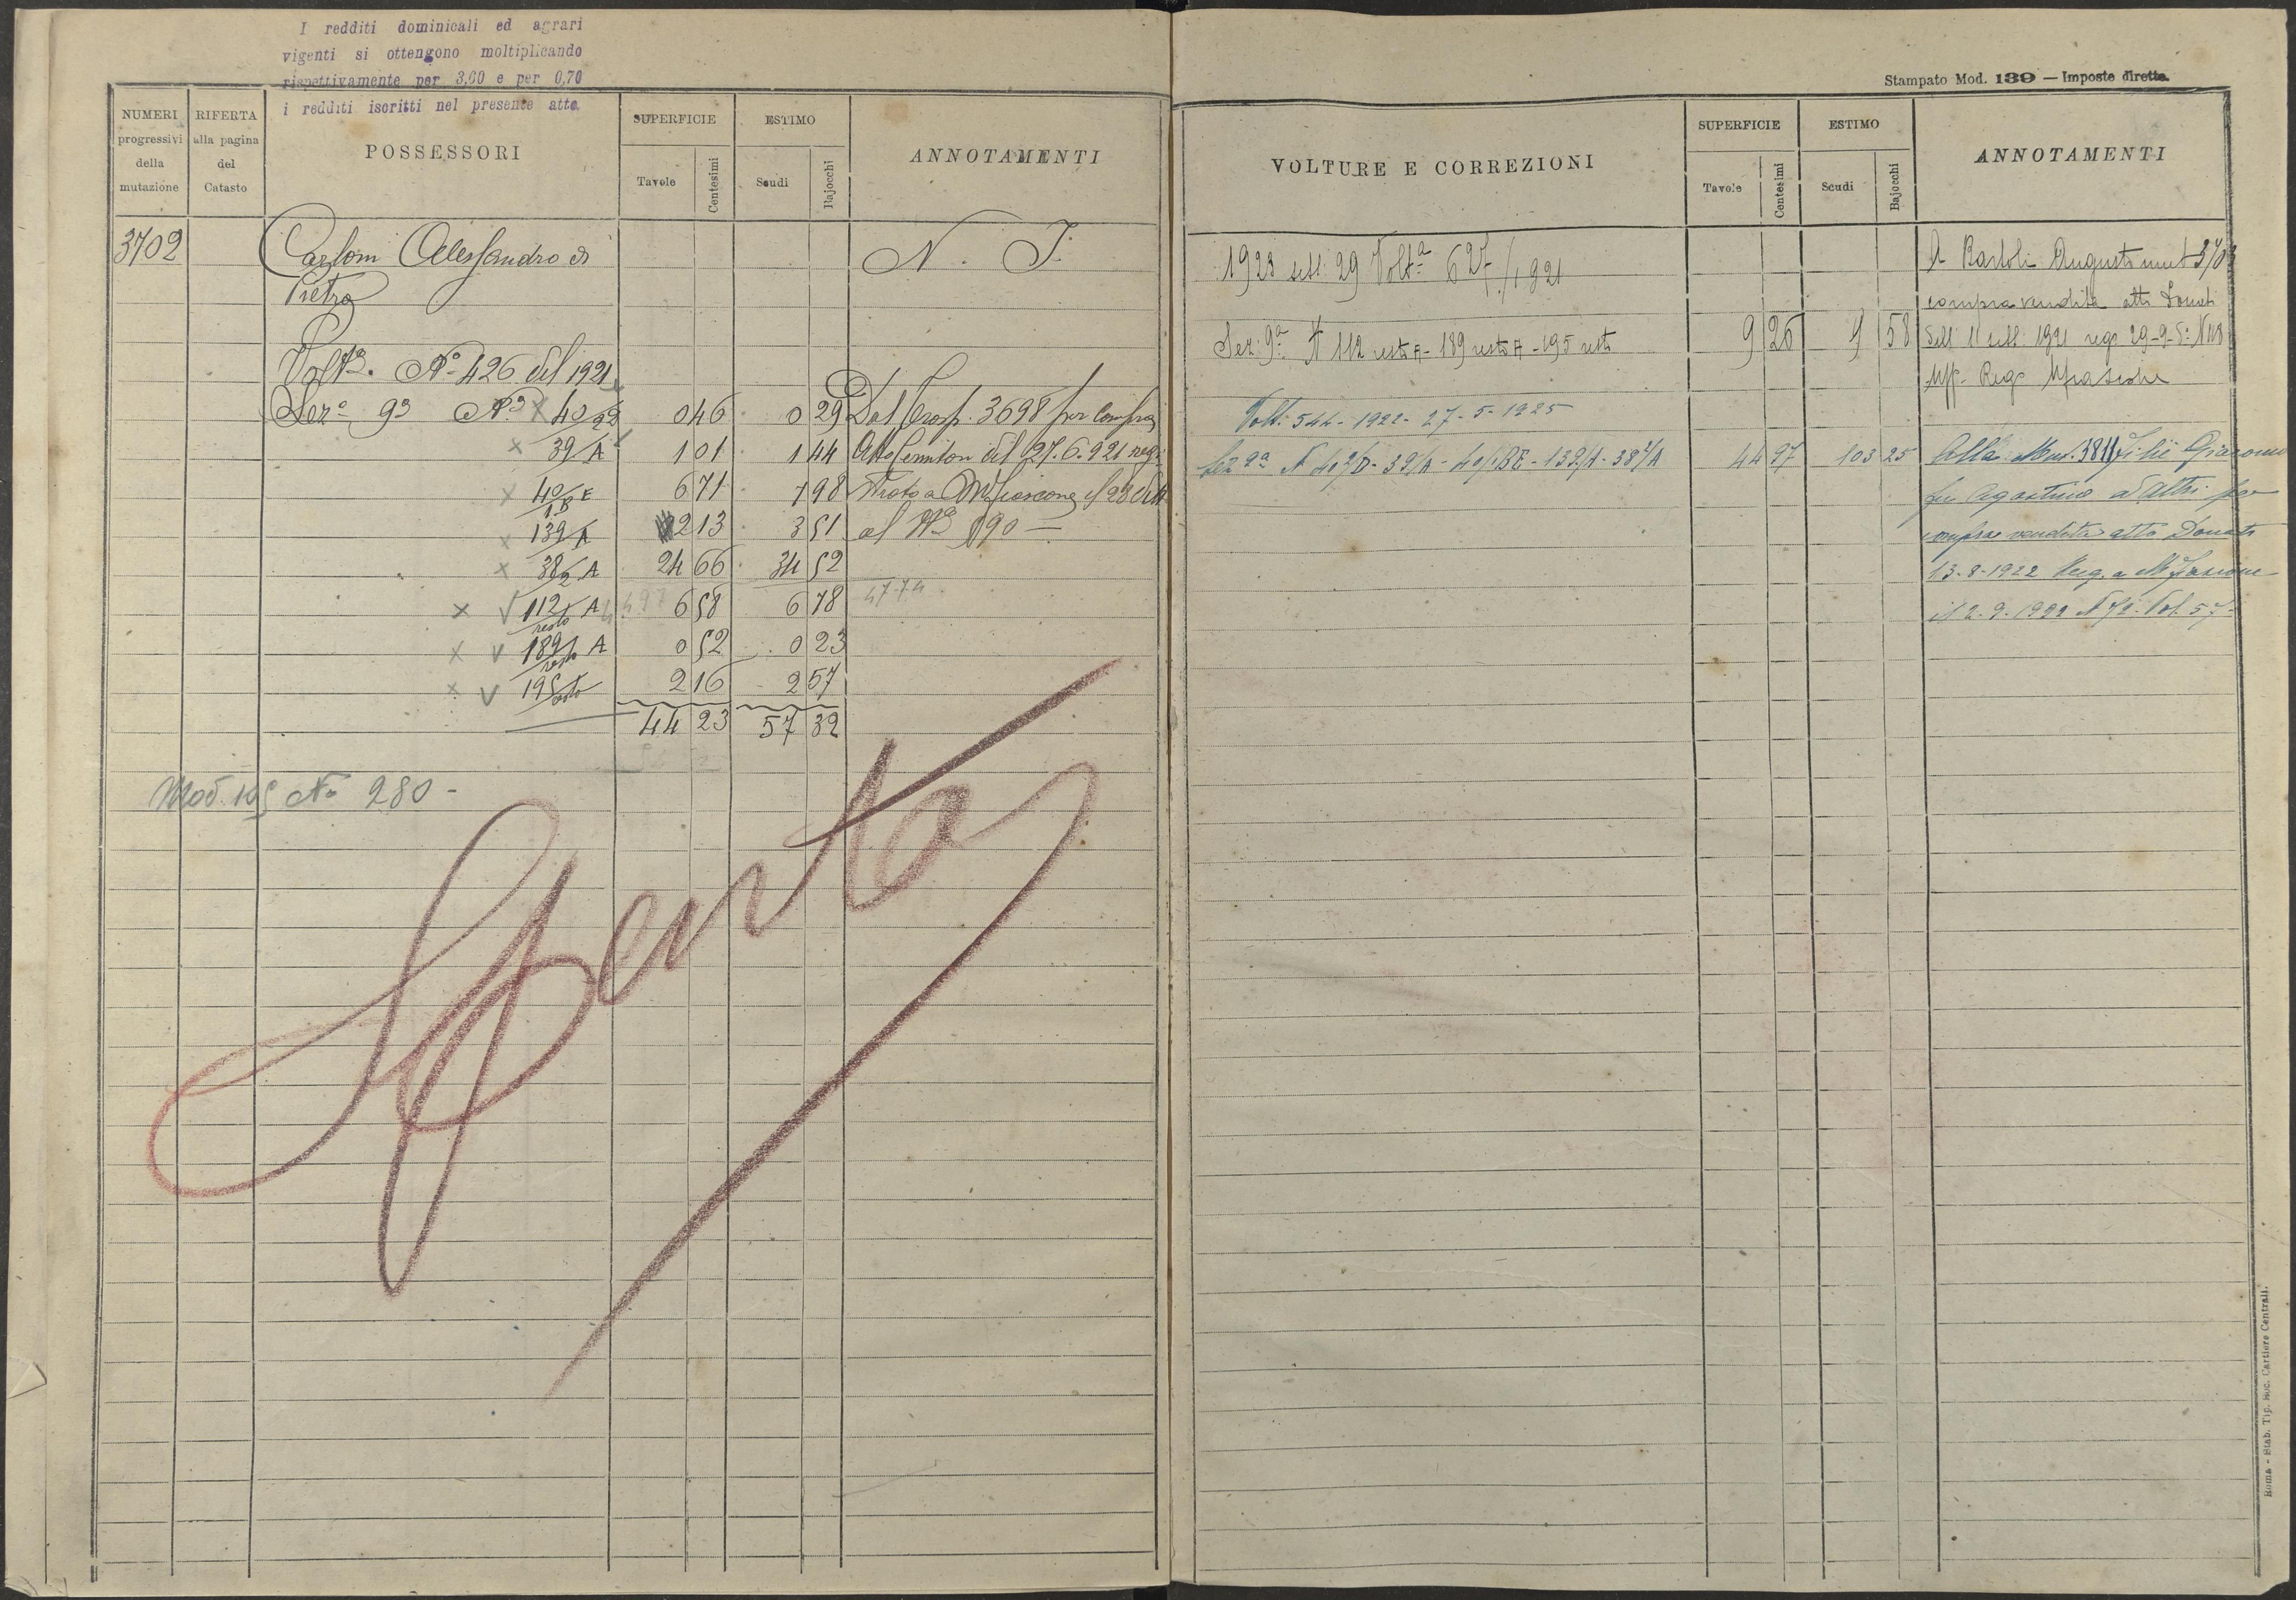 I redditi dominicali ed agrari
vigenti si ottengono moltiplicando
rispettivamente per 3,60 e per 0,70
i redditi iscritti nel presente atto.
NUMERI progressivi della mutazione
RIFERTA alla pagina del Catasto
POSSESSORI
SUPERFICIE
Tavole Centesimi
ESTIMO
Scudi Bajocchi
ANNOTAMENTI
3702 Carloni Alessandro di N. I.
Pietro
Volt.ª N.º 426 del 1921
Sez.e 9ª N.i 40/ 0 46 0 29 Dal Trasp. 3698 per compra
39/A 1 01 1 44 Atto del 27.6.921 reg.
40/1BE 6 71 7 98 a Mfiascone il 28
139/A 2 13 3 51 al N.º 890 —
38/2 A 24 66 34 52
112/1 A resto 6 58 6 78 47.74
189/1 A resto 0 52 0 23
195/ resto 2 16 2 57
44 23 57 32
Mod. 105 N.º 280 -
Spenta
Stampato Mod. 139 — Imposte dirette.
VOLTURE E CORREZIONI
SUPERFICIE
Tavole Centesimi
ESTIMO
Scudi Bajocchi
ANNOTAMENTI
1923 sett. 29 Volt.ª 627/1921 A Bartoli Augusto mut 370
compra vendita atto Donati
Sez: 9ª N 112 resto A - 189 resto A - 195 resto 9 26 9 58 11 sett. 1921 reg. 29-9-
Uff. Reg. Mfiascone
Volt. 544 - 1922 - 27-5-1925
Sez 9ª N 40/D - 39/A - 40/1BE - 139/A - 38/A 44 97 103 25 Alla Mut. 3811 Giacomo
fu Agostino ed altri per
compra vendita atto Donati
13-8-1922 Reg. a Mfiascone
il 2.9.1922 N 72 Vol. 57-
Roma - Stab. Tip. Soc. Cartiere Centrali.